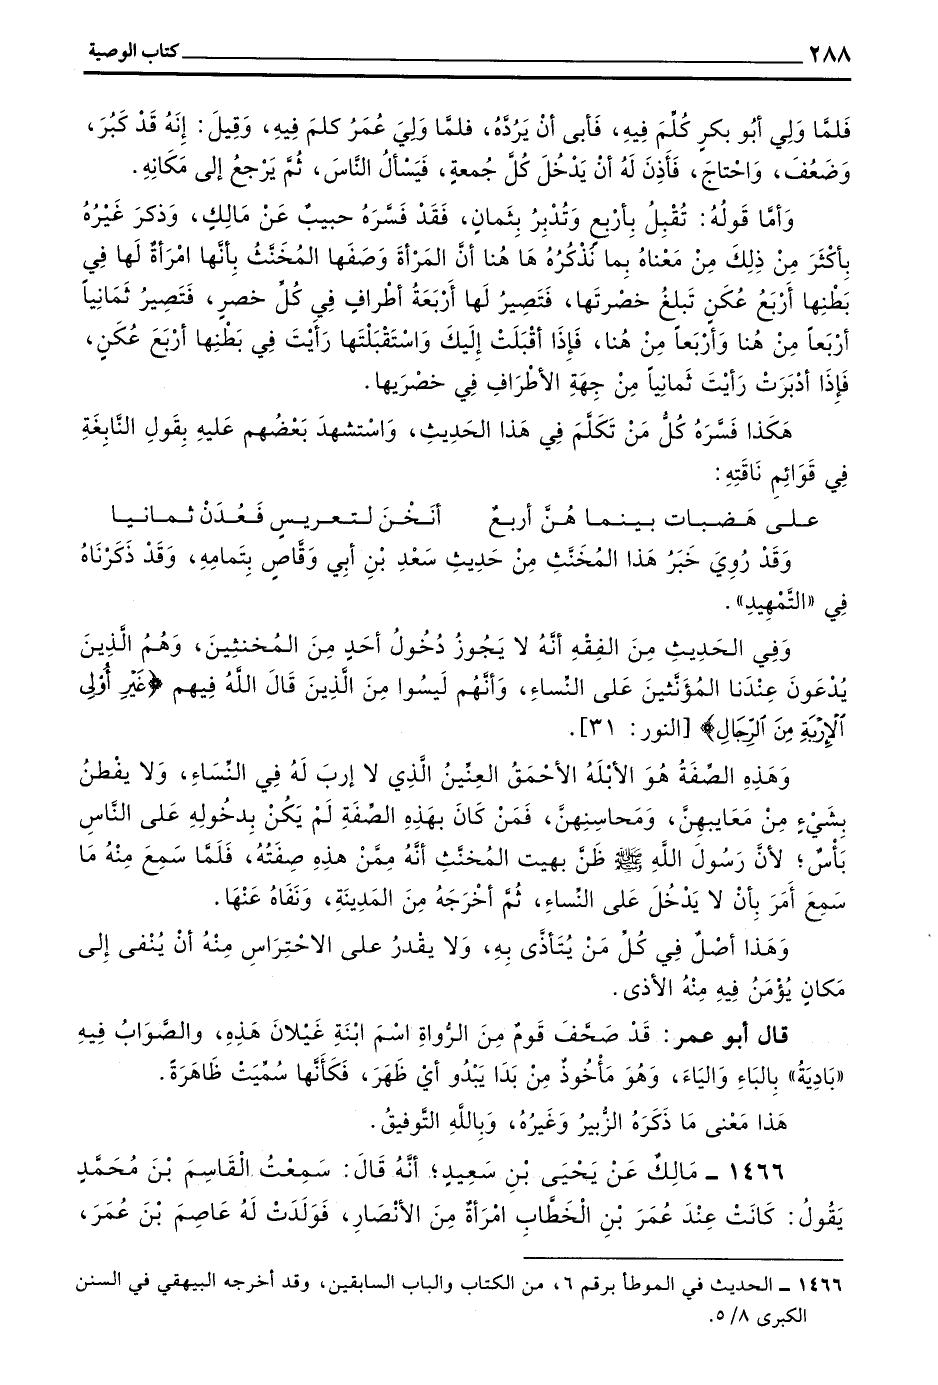 ٢٨٨ كتاب الوصية
فَلمَّا وَلِي أبُو بكرٍ كُلِّمَ فِيهِ، فَأبى أنْ يَرُدَّهُ، فلمَّا وَلِيَ عُمَرُ كلمَ فِيهِ، وَقِيلَ: إنَهُ قَدْ كَبُرَ،
وَضَعُفَ، وَاحْتاجَ، فَأذِنَ لَهُ أنْ يَدْخُلَ كُلَّ جُمعةٍ، فَيَسْألُ النَّاسَ، ثُمَّ يَرْجعُ إلى مَكَانِهِ.
وَأمَّا قَولُهُ: تُقْبِلُ بِأرْبعٍ وَتُدْبِرُ بِثَمانٍ، فَقَدْ فَسَّرَهُ حبيبٌ عَنْ مَالِكٍ، وَذكرَ غَيْرُهُ
بِأكْثَرَ مِنْ ذِلِكَ مِنْ مَعْناهُ بِما نُذْكُرُهُ هَا هُنا أنَّ المَرْأةَ وَصَفَها المُخَنَّثُ بِأنَّها امْرَأةٌ لَها فِي
بَطْنِها أرْبَعُ عُكَنٍ تَبلغُ خصْرتَها، فَتَصِيرُ لَها أرْبَعَةُ أطْرافٍ فِي كُلِّ خصرٍ، فَتَصِيرُ ثَمانِياً
أرْبَعاً مِنْ هُنا وَأرْبَعاً مِنْ هُنا، فَإذَا أقْبَلَتْ إلَيكَ وَاسْتَقْبَلْتَها رَأيْتَ فِي بَطْنِها أرْبَعَ عُكَنٍ،
فَإذَا أدْبَرَتْ رَأيْتَ ثَمانِياً مِنْ جِهَةِ الأطْرَافِ فِي خصْرَيها.
هَكَذا فَسَّرَهُ كُلُّ مَنْ تَكَلَّمَ فِي هَذا الحَدِيثِ، وَاسْتشهدَ بَعْضُهم عَليهِ بِقَولِ النَّابِغَةِ
فِي قَوَائِمِ نَاقَتِهِ:
علـى هَـضبـات بـينـمـا هُـنَّ أربـعٌ أنَـخْـنَ لـتـعـريـسٍ فَـعُـدْنَ ثـمـانـيـا
وَقَدْ رُوِيَ خَبَرُ هَذا المُخَنَّثِ مِنْ حَدِيثِ سَعْدِ بْنِ أبِي وَقَّاصٍ بِتَمامِهِ، وَقَدْ ذَكَرْنَاهُ
فِي «التَّمْهِيدِ».
وَفِي الحَدِيثِ مِنَ الفِقْهِ أنَّهُ لا يَجُوزُ دُخُولُ أحَدٍ مِنَ المُخنثِينَ، وَهُمُ الَّذِينَ
يُدْعَونَ عِنْدَنا المُؤَنَّثينَ عَلى النِّساءِ، وَأنَّهُم لَيسُوا مِنَ الَّذِينَ قَالَ اللَّهُ فِيهم ﴿غَيْرِ أُوْلِي
ٱلْإِرْبَةِ مِنَ ٱلرِّجَالِ﴾ [النور: ٣١].
وَهَذِهِ الصِّفَةُ هُوَ الأبْلَهُ الأحْمَقُ العِنِّينُ الَّذِي لا إربَ لَهُ فِي النِّسَاءِ، وَلا يفْطنُ
بِشَيْءٍ مِنْ مَعَايبهِنَّ، وَمَحاسِنِهنَّ، فَمَنْ كَانَ بِهَذِهِ الصِّفَةِ لَمْ يَكُنْ بِدخُولِهِ عَلى النَّاسِ
بَأْسٌ؛ لأنَّ رَسُولَ اللَّهِ ﷺ ظَنَّ بِهيت المُخنَّثِ أنَّهُ مِمَّنْ هذِهِ صِفتُهُ، فَلَمَّا سَمِعَ مِنْهُ مَا
سَمِعَ أمَرَ بِأنْ لا يَدْخُلَ عَلى النِّساءِ، ثُمَّ أخْرَجَهُ مِنَ المَدِينَةِ، وَنَفَاهُ عَنْهَا.
وَهَذا أصْلٌ فِي كُلِّ مَنْ يُتَأذَّى بِهِ، وَلا يقْدرُ على الاحْتِرَاسِ مِنْهُ أنْ يُنْفى إلى
مَكانٍ يُؤْمَنُ فِيهِ مِنْهُ الأذى.
قال أبو عمر: قَدْ صَحَّفَ قَومٌ مِنَ الرُّواةِ اسْمَ ابْنَةِ غَيْلانَ هَذِهِ، والصَّوَابُ فِيهِ
«بَادِيَةُ» بِالبَاءِ وَاليَاءَ، وَهُوَ مَأْخُوذٌ مِنْ بَدَا يَبْدُو أيْ ظَهَرَ، فَكَأنَّها سُمِّيَتْ ظَاهَرَةً.
هَذا مَعْنى مَا ذَكَرَهُ الزُّبيرُ وَغَيرُهُ، وَبِاللَّهِ التَّوفيقُ.
١٤٦٦ ـ مَالِكٌ عَنْ يَحْيَى بْنِ سَعِيدٍ؛ أنَّهُ قَالَ: سَمِعْتُ الْقَاسِمَ بْنَ مُحَمَّدٍ
يَقُولُ: كَانَتْ عِنْدَ عُمَرَ بْنِ الْخَطَّابِ امْرَأةٌ مِنَ الأنْصَارِ، فَوَلَدَتْ لَهُ عَاصِمَ بْنَ عُمَرَ،
١٤٦٦ ـ الحديث في الموطأ برقم ٦، من الكتاب والباب السابقين، وقد أخرجه البيهقي في السنن
الكبرى ٨/ ٥.